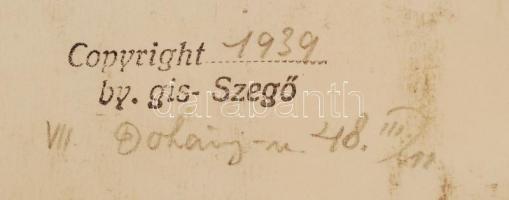 Copyright 1939
by. gis- Szegő
VII Dohány-u. 48. III/11
darabanth